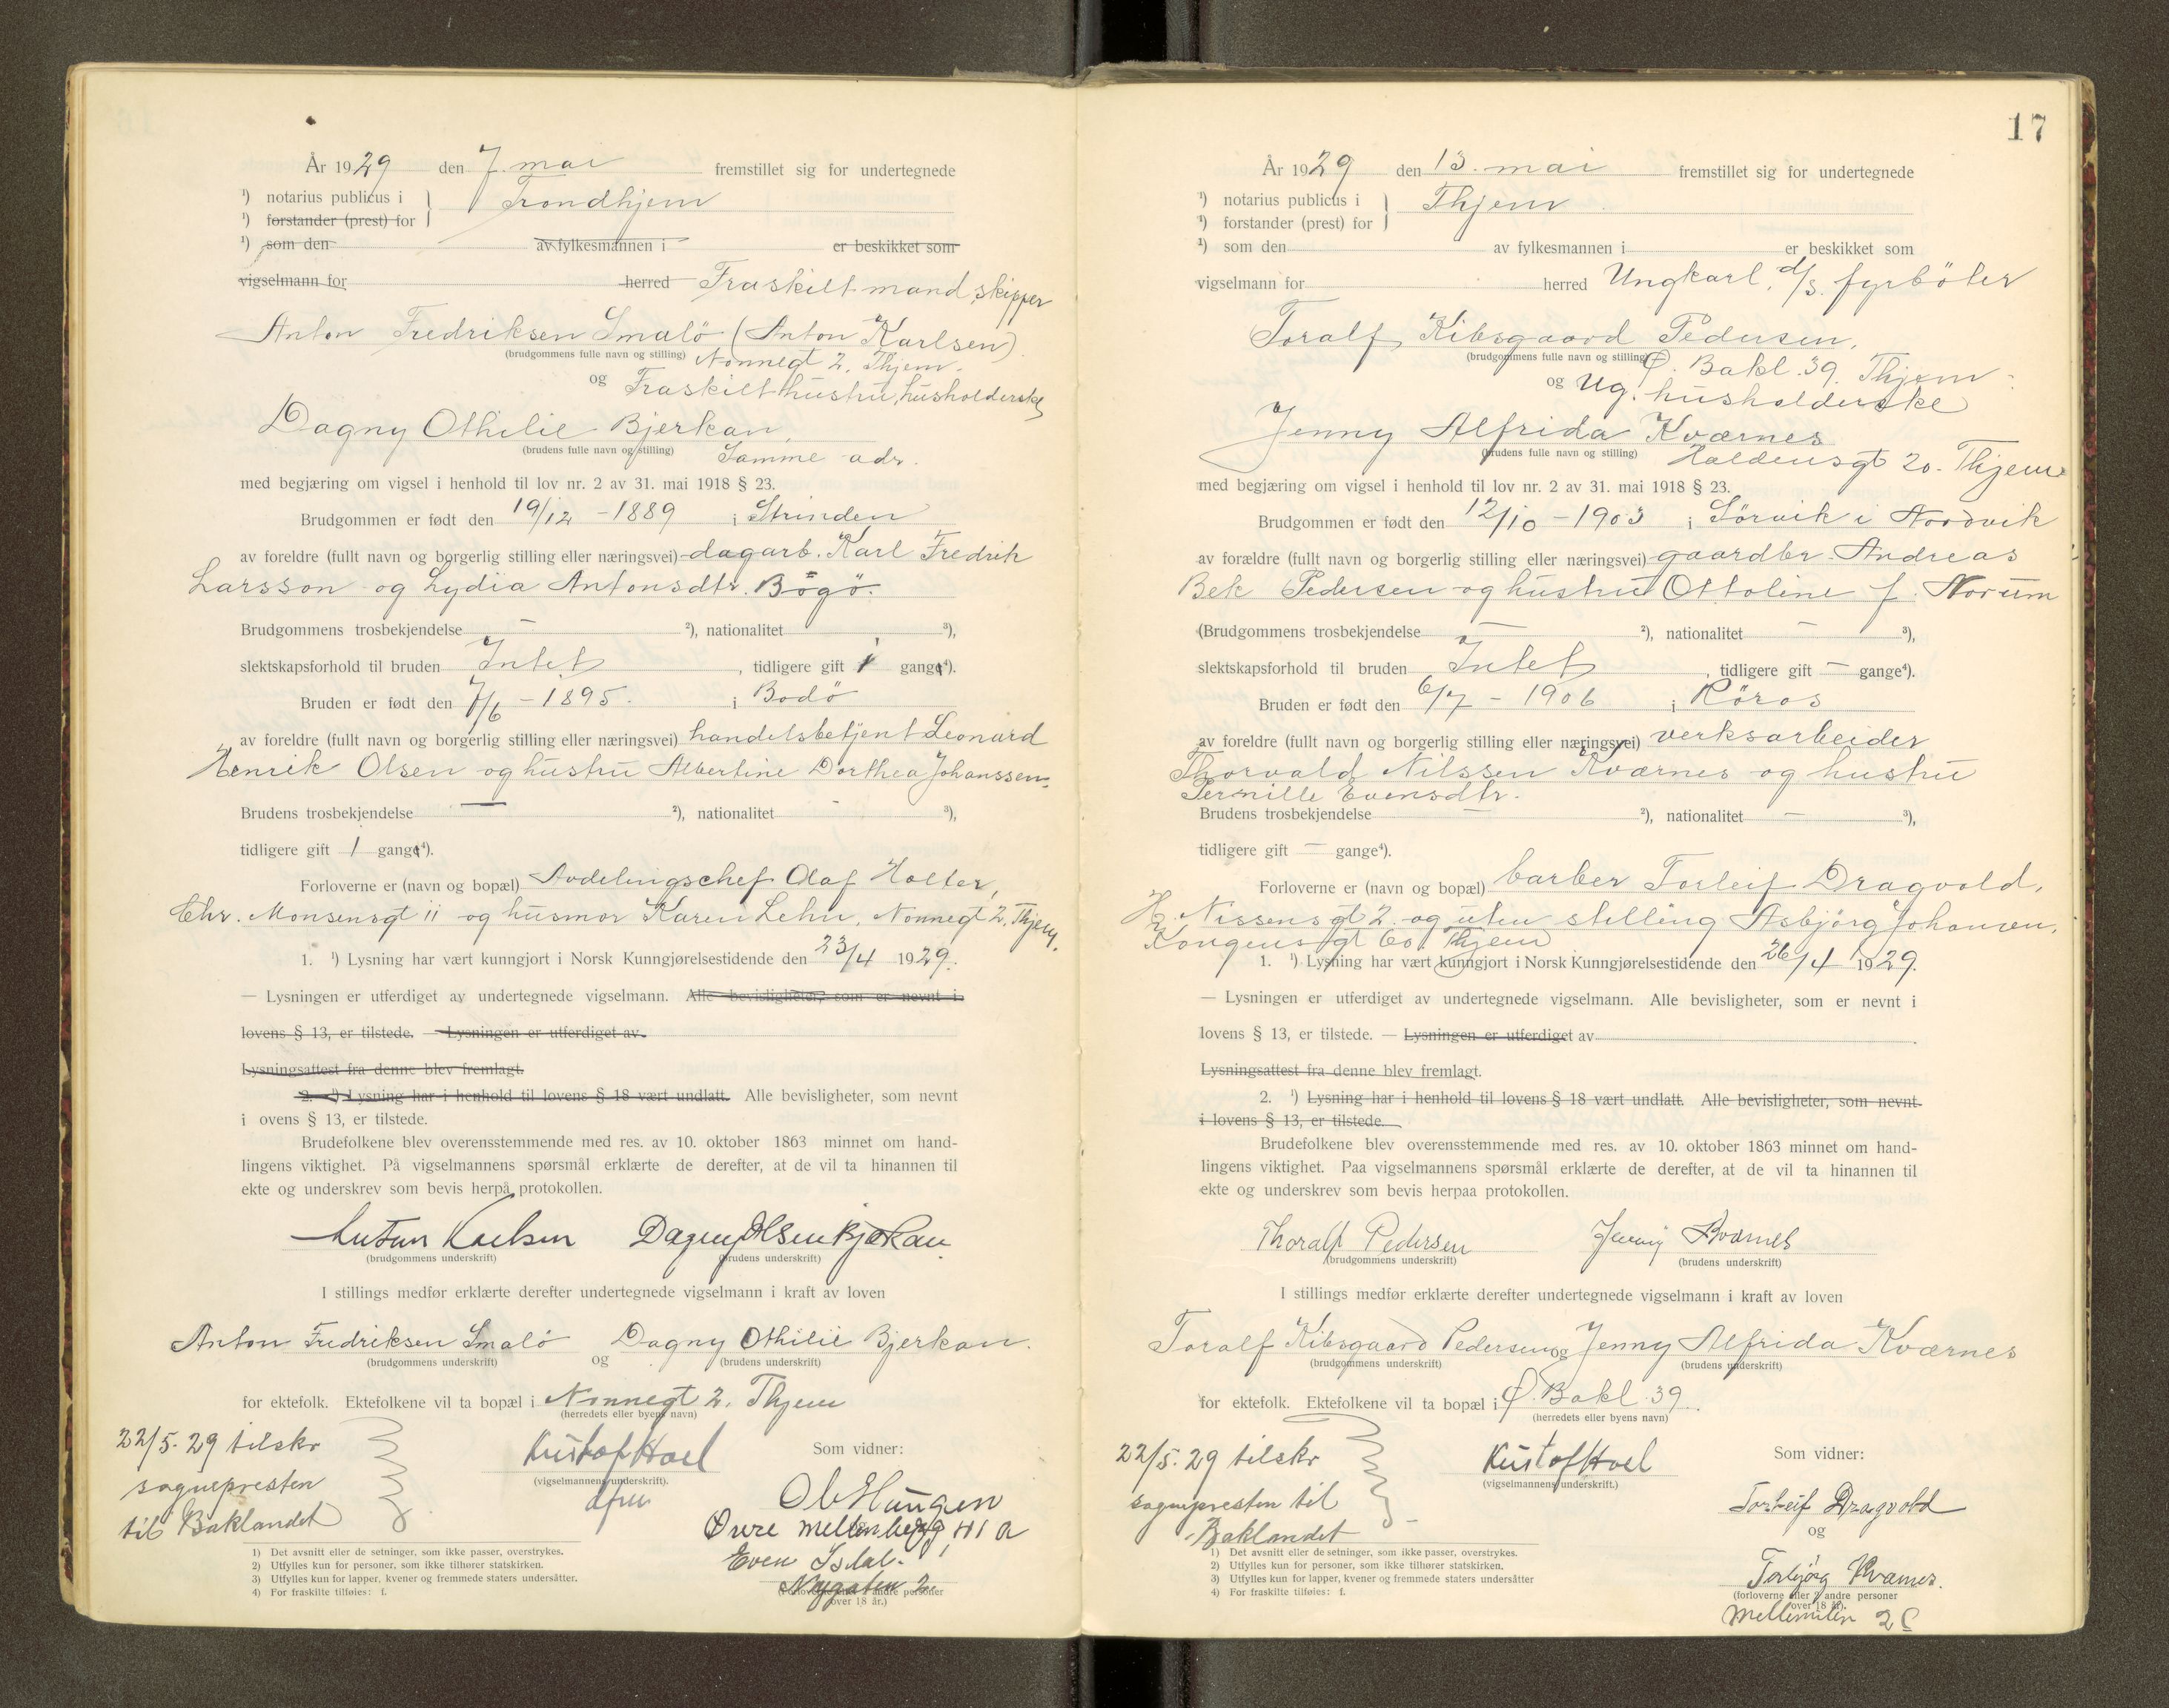 År 1929 den 7 mai fremstillet sig for undertegnede
¹) notarius publicus i } Trondhjem
¹) forstander (prest) for
¹) som den av fylkesmannen i er beskikket som
vigselmann for herred Fraskilt mand, skipper
Anton Fredriksen Smalö (Anton Karlsen)
(brudgommens fulle navn og stilling) Nonnegt 2. Thjem.
og Fraskilt hustru, husholderske
Dagny Othilie Bjerkan,
(brudens fulle navn og stilling) Samme adr.
med begjæring om vigsel i henhold til lov nr. 2 av 31. mai 1918 § 23.
Brudgommen er født den 19/12 - 1889 i Strinden
av foreldre (fullt navn og borgerlig stilling eller næringsvei) dagarb. Karl Fredrik
Larsson og Lydia Antonsdtr. Bögö.
Brudgommens trosbekjendelse — ²), nationalitet ³),
slektskapsforhold til bruden Intet , tidligere gift 1 gange⁴).
Bruden er født den 7/6 - 1895. i Bodö
av foreldre (fullt navn og borgerlig stilling eller næringsvei) handelsbetjent Leonard
Henrik Olsen og hustru Albertine Dorthea Johanssen.
Brudens trosbekjendelse — ²), nationalitet ³),
tidligere gift 1 gange⁴).
Forloverne er (navn og bopæl) Avdelingschef Olaf Holter,
Chr. Monsensgt 11 og husmor Karen Lehn, Nonnegt 2. Thjem.
1. ¹) Lysning har vært kunngjort i Norsk Kunngjørelsestidende den 23/4 1929.
— Lysningen er utferdiget av undertegnede vigselmann. Alle bevisligheter, som er nevnt i
lovens § 13, er tilstede. — Lysningen er utferdiget av
Lysningsattest fra denne blev fremlagt.
2. ¹) Lysning har i henhold til lovens § 18 vært undlatt. Alle bevisligheter, som nevnt
i ovens § 13, er tilstede.
Brudefolkene blev overensstemmende med res. av 10. oktober 1863 minnet om hand-
lingens viktighet. På vigselmannens spørsmål erklærte de derefter, at de vil ta hinannen til
ekte og underskrev som bevis herpå protokollen.
Anton Karlsen Dagny Olsen Bjerkan
(brudgommens underskrift) (brudens underskrift)
I stillings medfør erklærte derefter undertegnede vigselmann i kraft av loven
Anton Fredriksen Smalö og Dagny Othilie Bjerkan.
(brudgommens underskrift) (brudens underskrift)
for ektefolk. Ektefolkene vil ta bopæl i Nonnegt 2. Thjem
(herredets eller byens navn)
22/5. 29 tilskr
sognepresten
til Baklandet
Kristof Hoel
(vigselmannens underskrift).
Som vidner:
Ob Haugen
og
Övre Møllenberg 41 a
Even
Nygaten 2
(forloverne eller 2 andre personer
over 18 år.)
1) Det avsnitt eller de setninger, som ikke passer, overstrykes.
2) Utfylles kun for personer, som ikke tilhører statskirken.
3) Utfylles kun for lapper, kvener og fremmede staters undersåtter.
4) For fraskilte tilføies: f.
17
År 1929 den 13. mai fremstillet sig for undertegnede
¹) notarius publicus i } Thjem
¹) forstander (prest) for
¹) som den av fylkesmannen i er beskikket som
vigselmann for herred Ungkarl, d/s. fyrböter
Toralf Kibsgaard Pedersen,
(brudgommens fulle navn og stilling) Ø. Bakl. 39. Thjem
og Ug. husholderske
Jenny Alfrida Kværnes
(brudens fulle navn og stilling) Haldensgt 20. Thjem
med begjæring om vigsel i henhold til lov nr. 2 av 31. mai 1918 § 23.
Brudgommen er født den 12/10 - 1903 i Sörvik i Nordvik
av forældre (fullt navn og borgerlig stilling eller næringsvei) gaardbr. Andreas
Bek Pedersen og hustru Ottoline f. Norum
(Brudgommens trosbekjendelse — ²), nationalitet — ³),
slektskapsforhold til bruden Intet , tidligere gift — gange⁴).
Bruden er født den 6/7 - 1906 i Röros
av foreldre (fullt navn og borgerlig stilling eller næringsvei) verksarbeider
Thorvald Nilssen Kværnes og hustru
Pernille Evensdtr.
Brudens trosbekjendelse — ²), nationalitet — ³),
tidligere gift — gange⁴).
Forloverne er (navn og bopæl) barber Torleif Dragvold,
H. Nissensgt 2. og uten stilling Asbjörg Johansen,
Kongensgt 60. Thjem
1. ¹) Lysning har vært kunngjort i Norsk Kunngjørelsestidende den 26/4 1929.
— Lysningen er utferdiget av undertegnede vigselmann. Alle bevisligheter, som er nevnt i
lovens § 13, er tilstede. — Lysningen er utferdiget av
Lysningsattest fra denne blev fremlagt.
2. ¹) Lysning har i henhold til lovens § 18 vært undlatt. Alle bevisligheter, som nevnt
i lovens § 13, er tilstede.
Brudefolkene blev overensstemmende med res. av 10. oktober 1863 minnet om hand-
lingens viktighet. Paa vigselmannens spørsmål erklærte de derefter, at de vil ta hinannen til
ekte og underskrev som bevis herpaa protokollen.
Thoralf Pedersen Jenny Kværnes
(brudgommens underskrift) (brudens underskrift)
I stillings medfør erklærte derefter undertegnede vigselmann i kraft av loven
Toralf Kibsgaard Pedersen og Jenny Alfrida Kværnes
(brudgommens underskrift) (brudens underskrift)
for ektefolk. Ektefolkene vil ta bopæl i Ø. Bakl. 39.
(herredets eller byens navn)
22/5. 29 tilskr
sognepresten til
Baklandet
Kristof Hoel
(vigselmannens underskrift.)
Som vidner:
Torleif Dragvold
og
Torbjörg Kværnes.
(forloverne eller 2 andre personer
over 18 år).
Mellemilen 2
1) Det avsnitt eller de setninger, som ikke passer, overstrykes.
2) Utfylles kun for personer, som ikke tilhører statskirken.
3) Utfylles kun for lapper, kvener og fremmede staters undersåtter
4) For fraskilte tilføies: f.